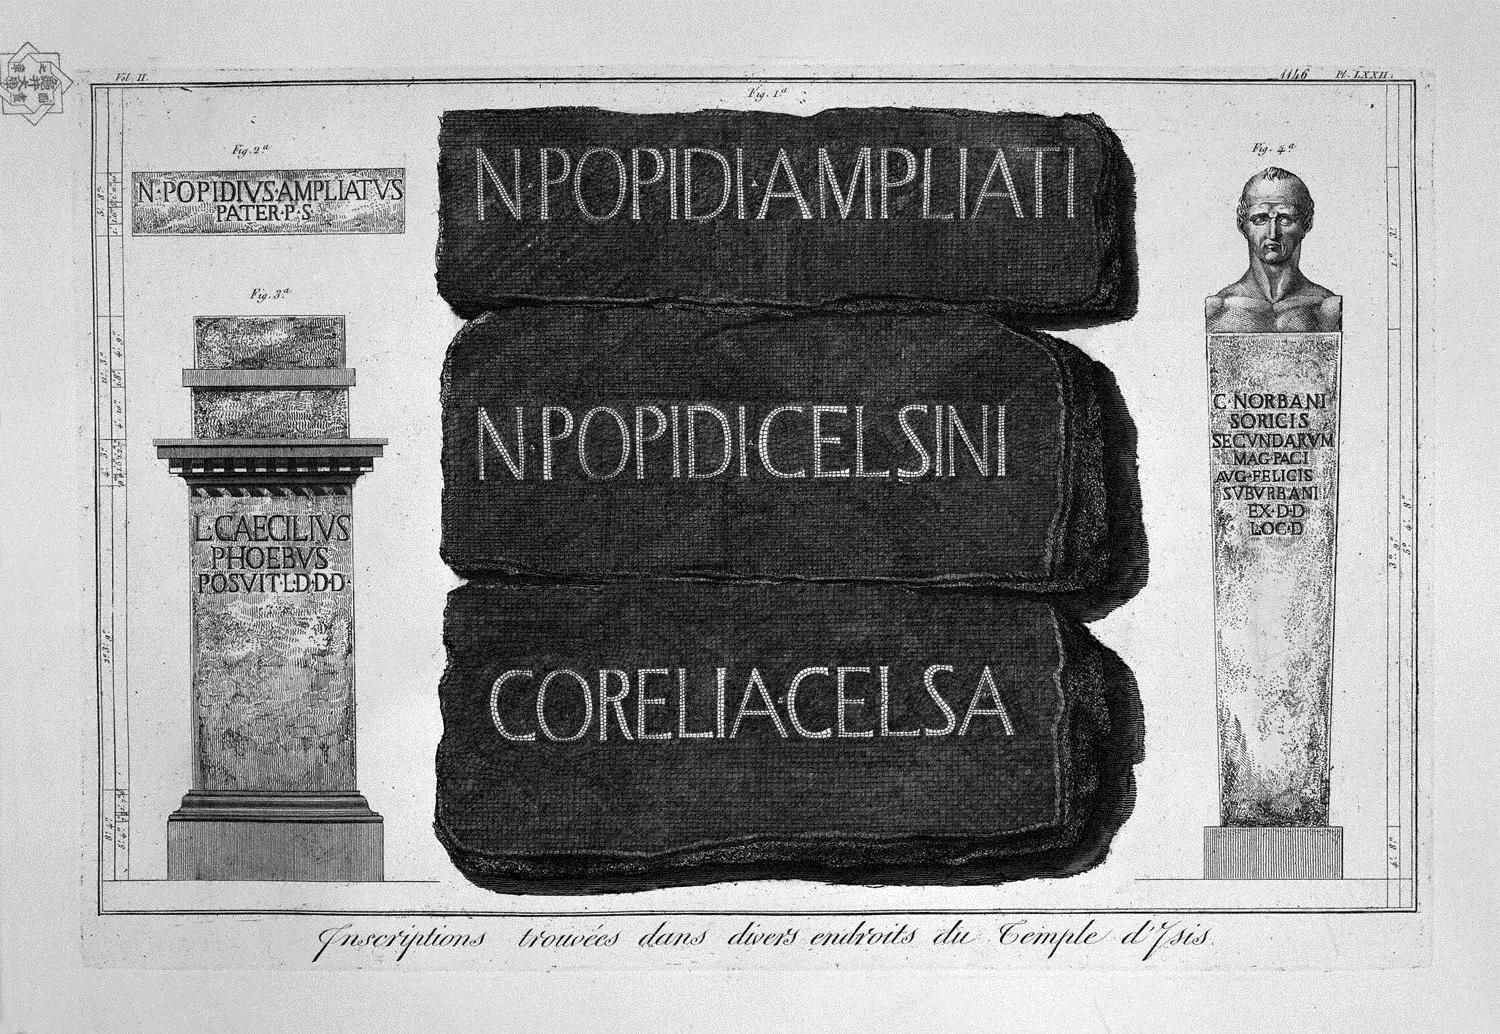 Vol. II.
1146
Pl. LXXII.
Fig. 1.a
N·POPIDI·AMPLIATI
N·POPIDI·CELSINI
CORELIA·CELSA
Fig. 2.a
N·POPIDIVS·AMPLIATVS
PATER·P·S
Fig. 3.a
L·CAECILIVS
PHOEBVS
POSVIT·L·D·D·D·
Fig. 4.a
C NORBANI
SORICIS
SECVNDARVM
MAG·PAGI
AVG·FELICIS
SVBVRBANI
EX·D·D
LOC·D
Inscriptions trouvées dans divers endroits du Temple d'Isis.